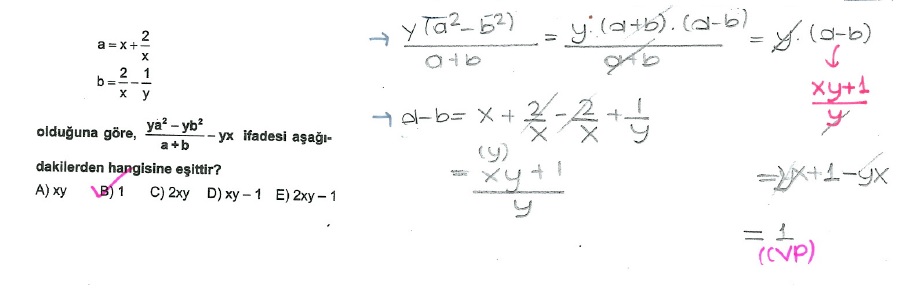 a = x + 2/x
b = 2/x − 1/y
olduğuna göre, (ya² − yb²)/(a + b) − yx ifadesi aşağı-
dakilerden hangisine eşittir?
A) xy B) 1 C) 2xy D) xy − 1 E) 2xy − 1
→ y(a² − b²)/(a + b) = y·(a+b).(a−b)/(a+b) = y·(a−b)
↓
(xy+1)/y
→ a−b = x + 2/x − 2/x + 1/y
(y)
= (xy + 1)/y
= yx + 1 − yx
= 1
(CVP)